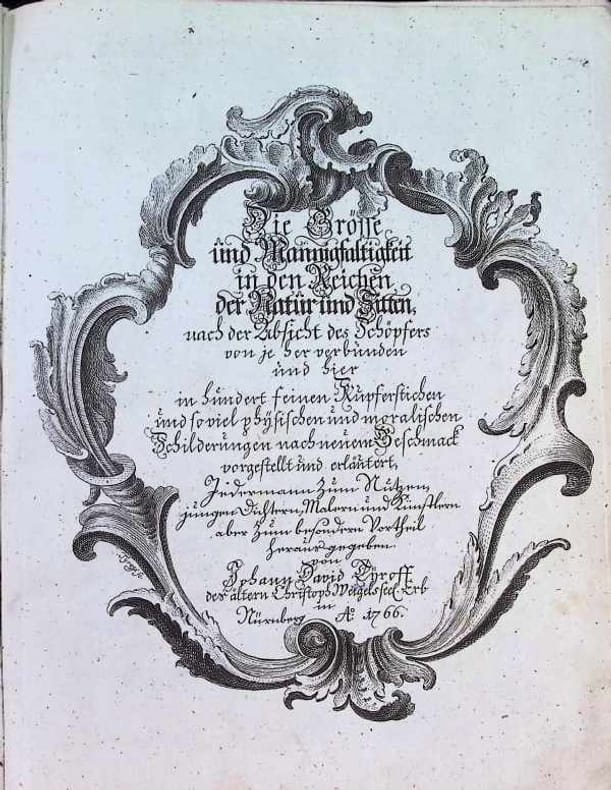 Die Grösse
und Mannigfaltigkeit
in den Reichen
der Natur und Sitten,
nach der Absicht des Schöpfers
von je her verbunden
und hier
in hundert feinen Kupferstichen
und so viel physischen und moralischen
Schilderungen nach neuem Geschmack
vorgestellt und erläutert,
Jedermann zum Nutzen,
jungen Dichtern, Malern und Künstlern
aber zum besondern Vortheil
heraus gegeben
von
Johann David Tyroff
des ältern Christoph Weigels seel. Erb
in
Nürnberg Aº. 1766.